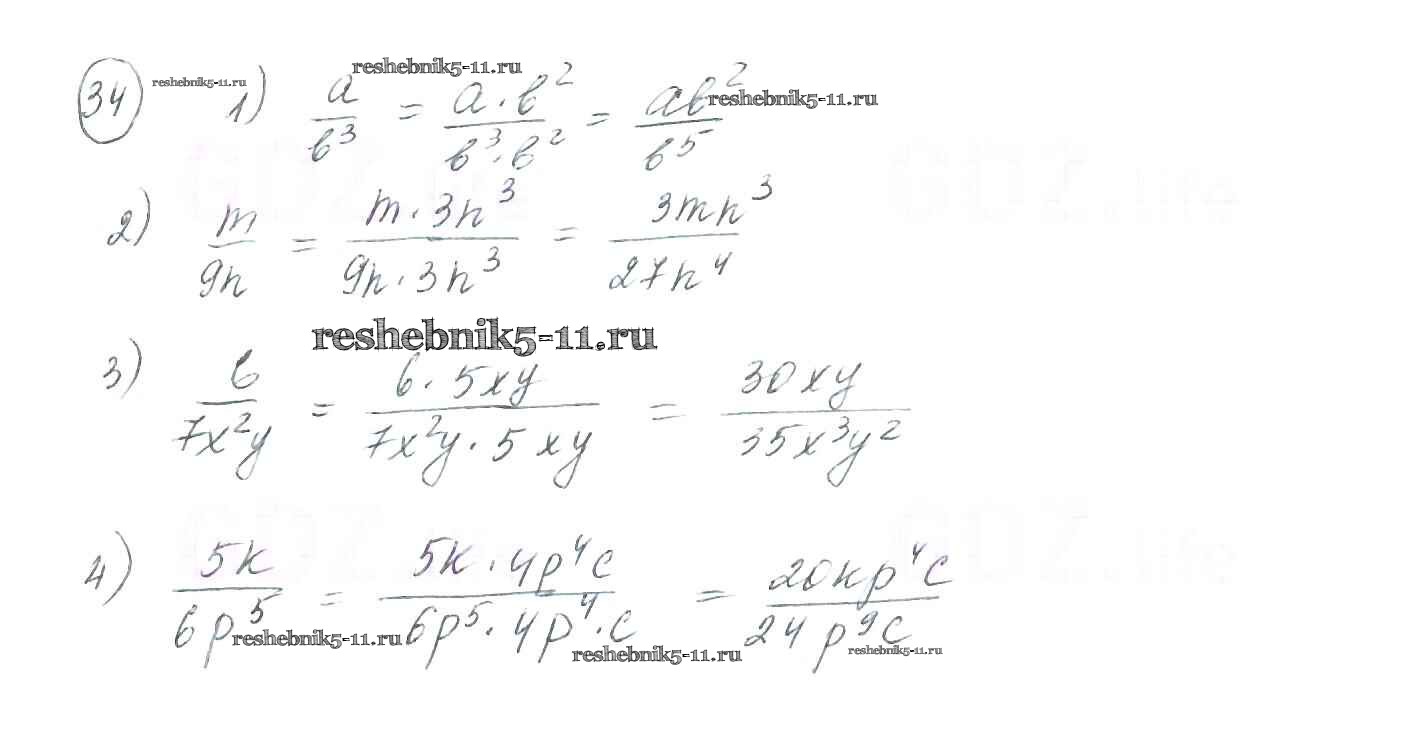 34 reshebnik5-11.ru 1) a/b³ = a·b²/b³·b² = ab²/b⁵ reshebnik5-11.ru reshebnik5-11.ru
GDZ.life GDZ.life
2) m/9n = m·3n³/9n·3n³ = 3mn³/27n⁴
reshebnik5-11.ru
3) 6/7x²y = 6·5xy/7x²y·5xy = 30xy/35x³y²
GDZ.life GDZ.life
4) 5k/6p⁵ = 5k·4p⁴c/6p⁵·4p⁴·c = 20kp⁴c/24p⁹c
reshebnik5-11.ru reshebnik5-11.ru reshebnik5-11.ru